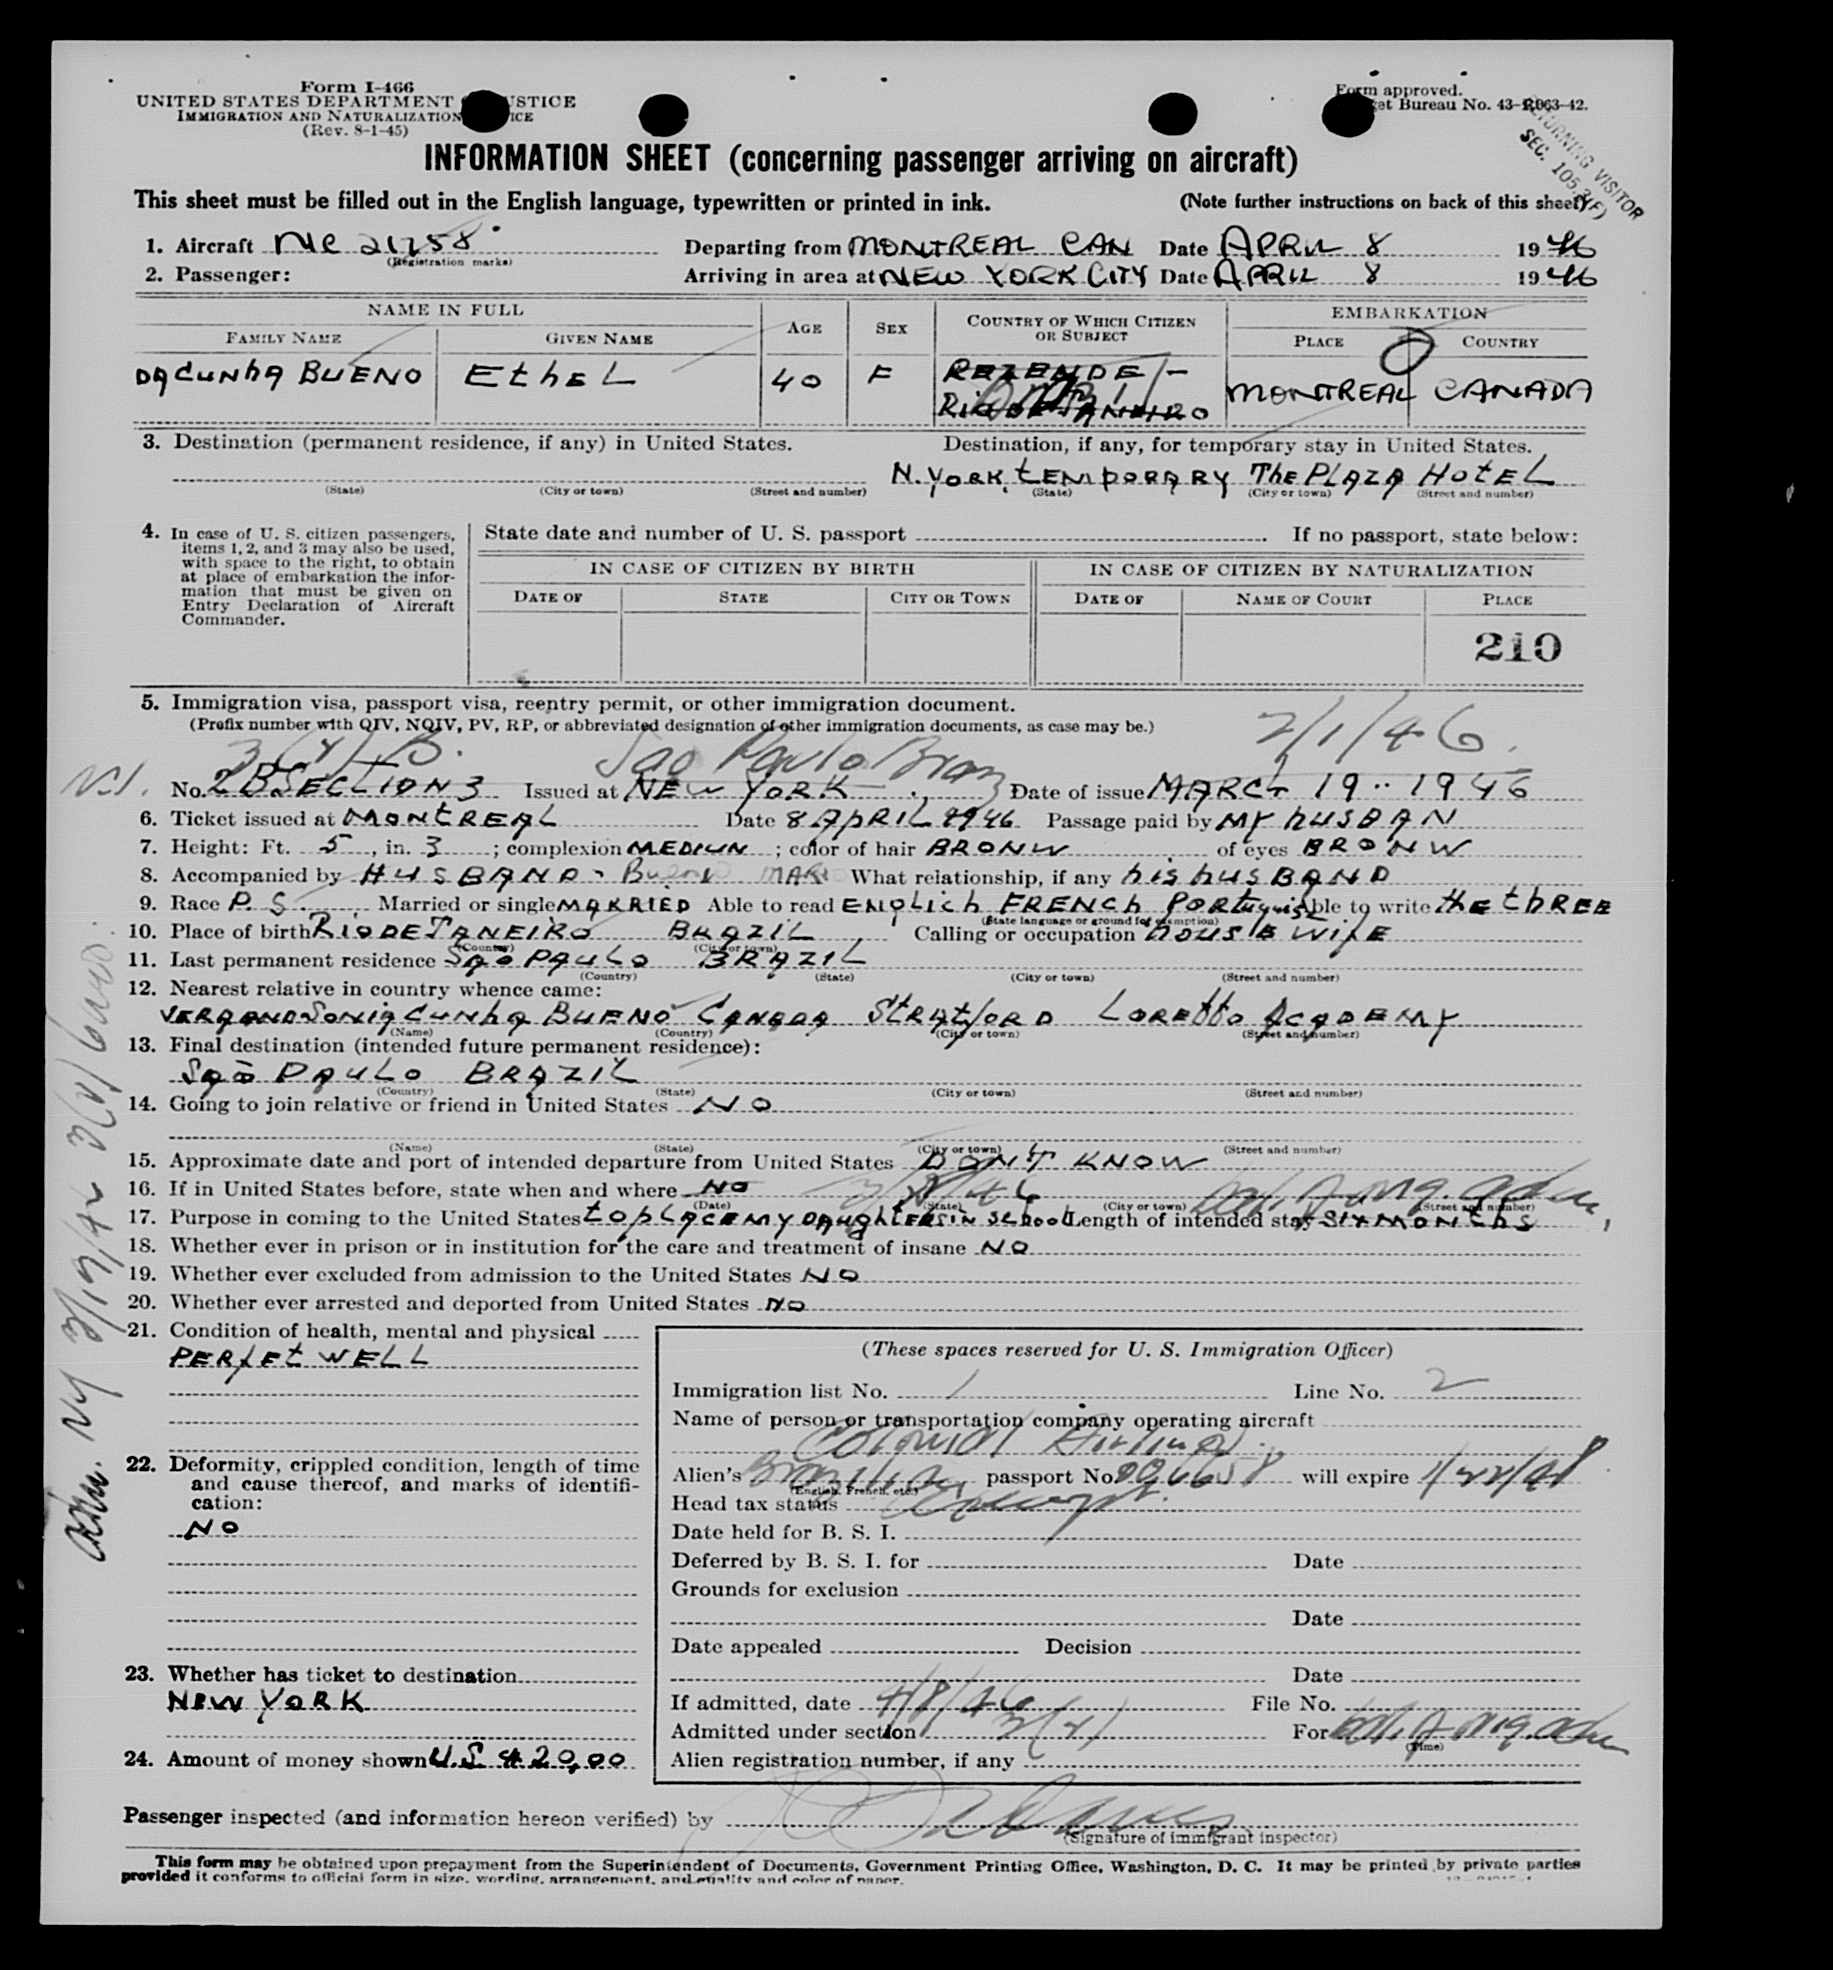 Form I-466
UNITED STATES DEPARTMENT STICE
IMMIGRATION AND NATURALIZATION ICE
(Rev. 8-1-45)
Form approved.
et Bureau No. 43-R063-42.
RETURNING VISITOR
SEC. 105.3(F)
INFORMATION SHEET (concerning passenger arriving on aircraft)
This sheet must be filled out in the English language, typewritten or printed in ink. (Note further instructions on back of this sheet)
1. Aircraft NC 21758 Departing from MONTREAL CAN Date APRIL 8 1946
(Registration marks)
2. Passenger: Arriving in area at NEW YORK CITY Date APRIL 8 1946
NAME IN FULL AGE SEX COUNTRY OF WHICH CITIZEN OR SUBJECT EMBARKATION
FAMILY NAME GIVEN NAME PLACE COUNTRY
DA CUNHA BUENO EthEL 40 F REZENDE - MONTREAL CANADA
RIO DE JANEIRO
3. Destination (permanent residence, if any) in United States. Destination, if any, for temporary stay in United States.
N. YORK tEMPORARY ThE PLAZA HotEL
(State) (City or town) (Street and number) (State) (City or town) (Street and number)
4. In case of U. S. citizen passengers, items 1, 2, and 3 may also be used, with space to the right, to obtain at place of embarkation the information that must be given on Entry Declaration of Aircraft Commander.
State date and number of U. S. passport If no passport, state below:
IN CASE OF CITIZEN BY BIRTH IN CASE OF CITIZEN BY NATURALIZATION
DATE OF STATE CITY OR TOWN DATE OF NAME OF COURT PLACE
210
5. Immigration visa, passport visa, reentry permit, or other immigration document.
(Prefix number with QIV, NQIV, PV, RP, or abbreviated designation of other immigration documents, as case may be.)
3(2) B. Sao Paulo Braz 2/1/46.
No. 2 B SECTION 3 Issued at NEW YORK Date of issue MARCh 19 - 1946
6. Ticket issued at MONtREAL Date 8 APRIL 1946 Passage paid by MY hUSBAN
7. Height: Ft. 5, in. 3; complexion MEDIUN; color of hair BRONW of eyes BRONW
8. Accompanied by HUSBAND - Bueno MARIO What relationship, if any his hUSBAND
9. Race P. S. Married or single MARRIED Able to read ENglich FRENCH PORtuguis Able to write thE thREE
(State language or ground for exemption)
10. Place of birth RIO DE JANEIRO BRAZIL Calling or occupation hOUSE WIfE
(Country) (City or town)
11. Last permanent residence São PAULO BRAZIL
(Country) (State) (City or town) (Street and number)
12. Nearest relative in country whence came:
VERA AND SONIA CUNhA BUENO CANADA StRAtfORD LOREtto ACADEMY
(Name) (Country) (City or town) (Street and number)
13. Final destination (intended future permanent residence):
São PAULO BRAZIL
(Country) (State) (City or town) (Street and number)
14. Going to join relative or friend in United States NO
(Name) (State) (City or town) (Street and number)
15. Approximate date and port of intended departure from United States DONT KNOW
16. If in United States before, state when and where NO
(Date) (State) (City or town) (Street and number)
17. Purpose in coming to the United States to plACE MY DAUghtERS IN SChool Length of intended stay SIX MONths
18. Whether ever in prison or in institution for the care and treatment of insane NO
19. Whether ever excluded from admission to the United States NO
20. Whether ever arrested and deported from United States NO
21. Condition of health, mental and physical
PERfEt WELL
22. Deformity, crippled condition, length of time and cause thereof, and marks of identification:
NO
23. Whether has ticket to destination
NEW YORK
24. Amount of money shown U.S. $ 20,00
(These spaces reserved for U. S. Immigration Officer)
Immigration list No. 1 Line No. 2
Name of person or transportation company operating aircraft
Colonial Airlines
Alien's Brazilian passport No. will expire 1/22/48
(English, French, etc.)
Head tax status Exempt.
Date held for B. S. I.
Deferred by B. S. I. for Date
Grounds for exclusion
Date
Date appealed Decision
Date
If admitted, date 4/8/46 File No.
Admitted under section 3(2) For
(Time)
Alien registration number, if any
Passenger inspected (and information hereon verified) by
(Signature of immigrant inspector)
This form may be obtained upon prepayment from the Superintendent of Documents, Government Printing Office, Washington, D. C. It may be printed by private parties
provided it conforms to official form in size, wording, arrangement, and quality and color of paper.